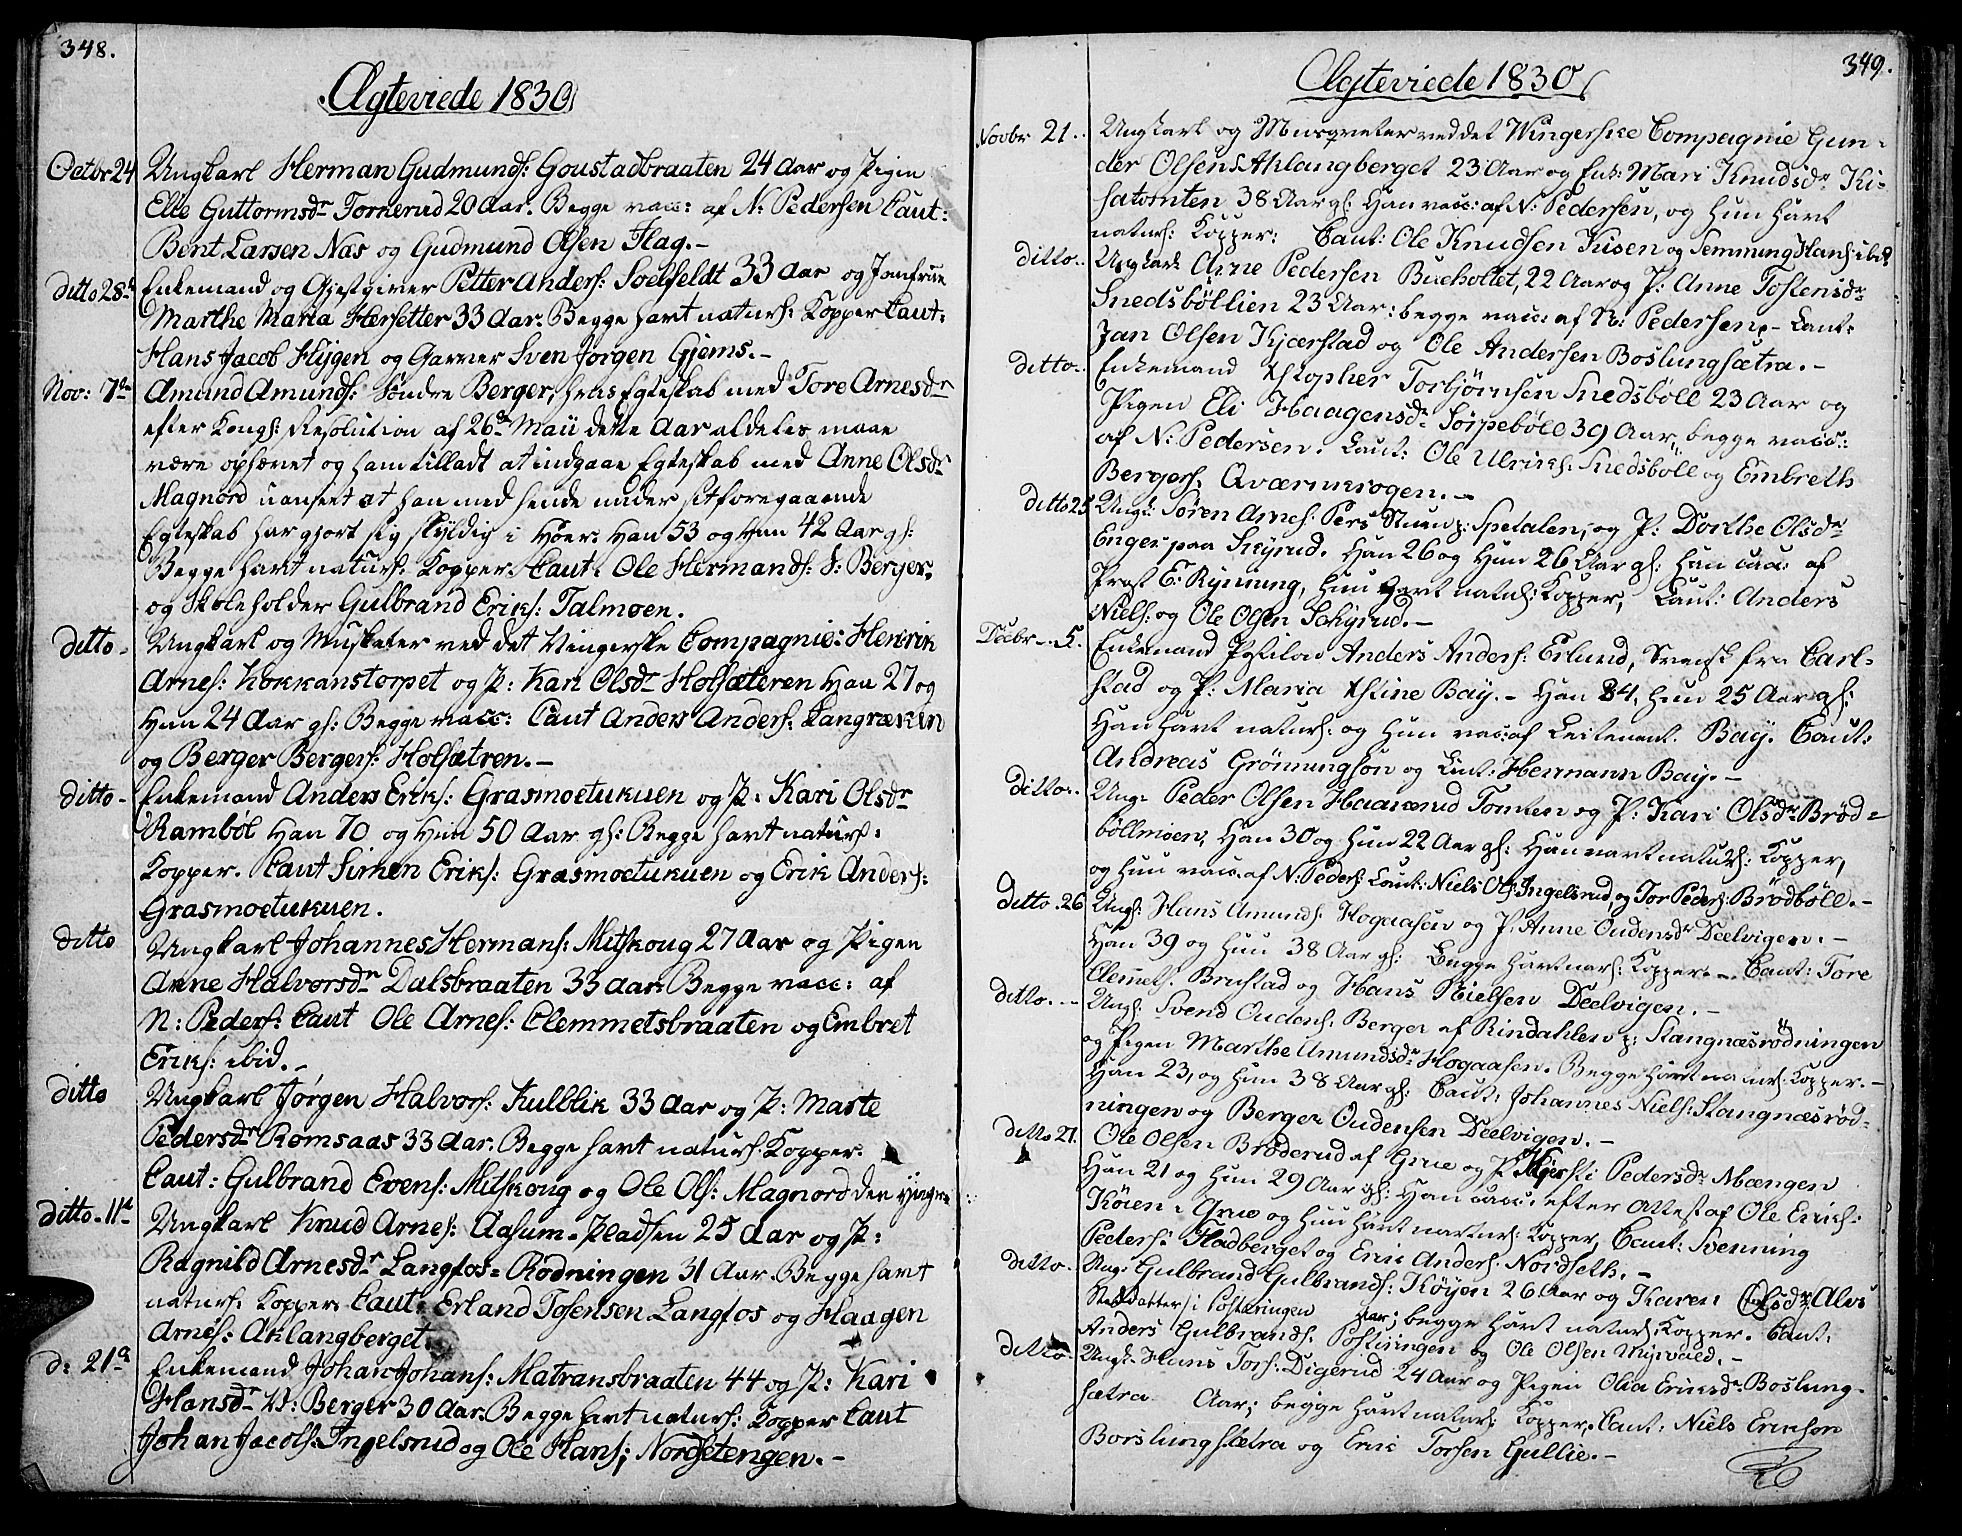 348.
Ægteviede 1830
Octbr 24 Ungkarl Herman Gudmunds: Goustadbraaten 24 Aar og Pigen
Elie Guttormsdr Tornerud 20 Aar. Begge vacc: af N: Pedersen Caut:
Bent Larsen Næs og Gudmund Olsen Flag.-
ditto 28de Enkemand og Gjestgiver Petter Anders: Soelfeldt 33 Aar og Jomfrue
Marthe Maria Hersetter 33 Aar. Begge havt naturs: Kopper Caut:
Hans Jacob Hijgen og Garver Sven Jørgen Gjems.-
Nov: 7de Amund Amunds: Søndre Berger, hvis Egteskab med Tore Arnesdr
efter Kongs: Resolution af 26de Maii dette Aar aldeles maae
være ophævet og ham tilladt at indgaae Egteskab med Anne Olsdr
Magnord uanseet at han med hende under sit foregaaende
Egteskab har gjort sig skyldig i Hoer. Han 53 og Hun 42 Aar gl:
Begge havt naturs: Kopper. Caut: Ole Hermands: S: Berger.
og Skoleholder Gulbrand Eriks: Talmoen.
ditto- Ungkarl og Musketer ved det Vingerske Compagnie: Henrik
Arnes: Kokkanstorpet og P: Kari Olsdr Holsæteren Han 27 og
Hun 24 Aar gl: Begge vacc: Caut Anders Anders: Langrækken
og Berger Bergers: Holsætren.-
ditto- Enkemand Anders Eriks: Grasmoetukuen og P: Kari Olsdr
Rambøl Han 70 og Hun 50 Aar gl: Begge havt naturs:
Kopper. Caut Simen Eriks: Grasmoetukuen og Erik Anders:
Grasmoetukuen.
ditto Ungkarl Johannes Hermans: Mitskoug 27 Aar og Pigen
Anne Halvorsdr Dalsbraaten 33 Aar. Begge vacc: af
N: Peders: Caut Ole Arnes: Clemmetsbraaten og Embret
Eriks: ibid.-
ditto Ungkarl Jørgen Halvors: Kulblik 33 Aar og P: Marte
Pedersdr Romsaas 33 Aar. Begge havt naturs: Kopper.
Caut: Gulbrand Evens: Mitskoug og Ole Ols: Magnord den yngre
ditto 11te Ungkarl Knud Arnes: Aasum-Pladsen 25 Aar og P:
Ragnild Arnesdr Langfos-Rødningen 31 Aar. Begge havt
naturs: Kopper Caut. Erland Tosensen Langfos og Haagen
Arnes: Aklangberget.
d: 21de Enkemand Johan Johans: Matransbraaten 44 og P: Kari
Hansdr V: Berger 30 Aar. Begge havt naturs: Kopper Caut
Johan Jacobs: Ingelsrud og Ole Hans: Nordsetengen.-
349.
Ægteviede 1830
Novbr 21.. Ungkarl og Musqueter ved det Wingerske Compagnie Gun-
der Olsen Ahlangberget 23 Aar og Enk: Mari Knudsdr Ki-
satomten 38 Aar gl: Han vacc: af N: Pedersen, og hun havt
naturs: Kopper: Caut: Ole Knudsen Kisen og Semmung Hans: ibid
ditto.. Ungkarl Arne Pedersen Bucholtet, 22 Aar og P: Anne Tostensdr
Snedsböllien 23 Aar: begge vacc: af N: Pedersen,- Caut:
Jan Olsen Kjærstad og Ole Andersen Boslungsætra.-
ditto.. Enkemand Xstopher Torbjørnsen Snedsböll 23 Aar og
Pigen Eli Haagensdr Sörpeböll 39 Aar, begge vacc:
af N: Pedersen. Caut: Ole Ulrichs: Snedsböll og Embreth
Bergers: Qværnkrogen.-
ditto 25 Ungk: Søren Arnes: Pers Stuen p: Spetalen, og P: Dorthe Olsdr
Enger paa Skyrud. Han 26 og Hun 26 Aar gl: Han vacc: af
Prost E: Rynning, hun havt naturs: Kopper, Caut: Anders
Niels: og Ole Olsen Schyrud.-
Decbr - 5. Enkemand Anders Anders: Erlund, Svensk fra Carl-
stad og P: Maria Xstine Bay.- Han 84, hun 25 Aar gl:
Han havt naturs: og hun vacc: af Leitenant Bay. Caut:
Andreas Grönningson og Lint: Hermann Bay.-
ditto.. Ung: Peder Olsen Haaverud Tomten og P: Kari Olsdr Bröd-
böllmoen, Han 30 og hun 22 Aar gl: Han havt naturs: Kopper,
og hun vacc: af N: Peders: Caut: Niels Ols: Ingelsrud, og Tor Peders: Brödböll.-
ditto .26 Ungk: Hans Amunds: Hogaasen og P: Anne Oudensdr Deelvigen.-
Han 39 og hun 38 Aar gl: Begge havt nars: Kopper.- Caut: Tore
Clemets: Brustad og Hans Nielsen Deelvigen.-
ditto. - Ungk: Svend Oudens: Berger af Rindahlen p: Stangnæsrödningen
og Pigen Marthe Amundsdr Hogaasen. Begge havt naturs: Kopper.-
Han 23, og hun 38 Aar gl: Caut: Johannes Niels: Stangnæsröd-
ningen og Berger Oudensen Deelvigen.-
ditto 27. Ole Olsen Bröderud af Grue og P. Kjersti Pedersdr Mængen
Han 21 og hun 29 Aar gl: Han vacc: efter Attest af Ole Erichs:
Köien i Grue og hun havt naturs: Kopper, Caut: Svenning
Peders: Fladberget og Eric Anders: Nordseth.-
ditto- Ung: Gulbrand Gulbrands: Köyen 26 Aar og Karen Olsdr Alvs
Steddatter i Posteringen Aar; begge havt naturs: Kopper. Caut:
Anders Gulbrands: Posteringen og Ole Olsen Myrvold.-
ditto- Ungk: Hans Tors: Digerud 24 Aar og Pigen Olia Eriksdr Boslung-
sætra Aar; begge havt naturs: Kopper, Caut: Niels Erikson
Borslungsætra og Eric Torsen Gullie.-